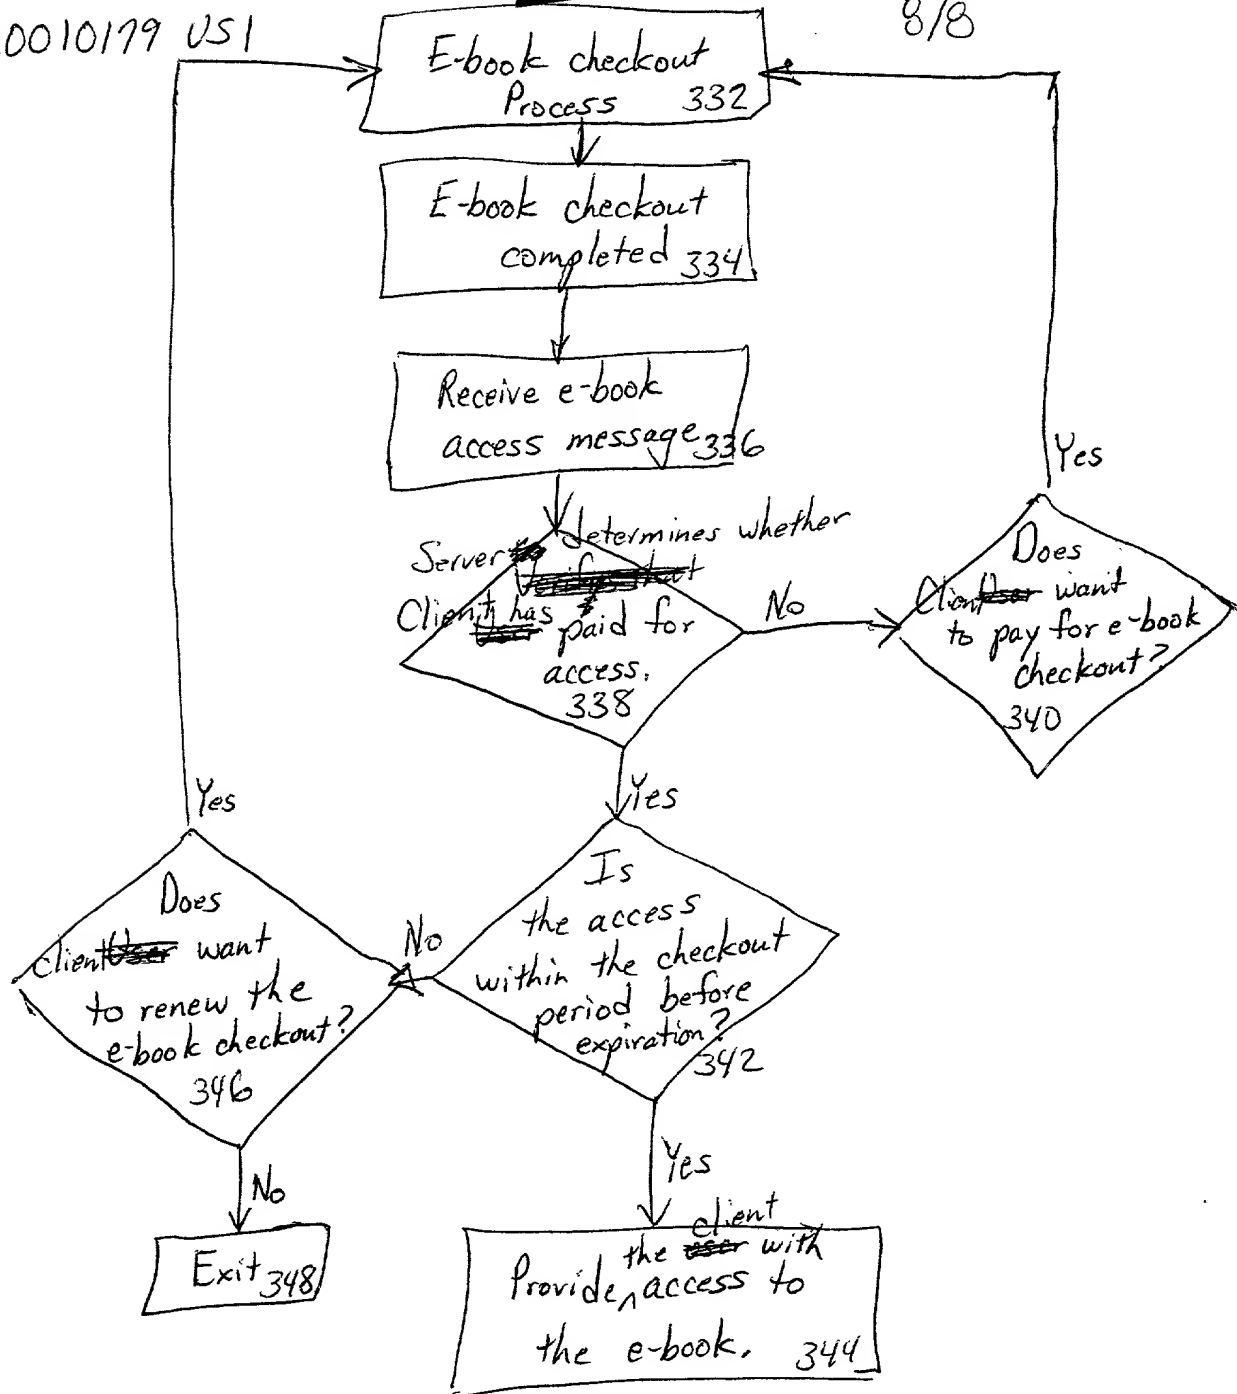 0010179 US1
8/8
E-book checkout
Process 332
E-book checkout
completed 334
Receive e-book
access message 336
Server determines whether
Client has paid for
access.
338
No
Yes
Does
Client want
to pay for e-book
checkout?
340
Yes
Is
the access
within the checkout
period before
expiration?
342
No
Yes
Does
client want
to renew the
e-book checkout?
346
No
Exit 348
Yes
client
the user with
Provide ^ access to
the e-book. 344